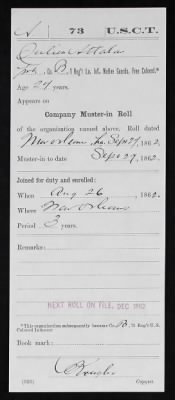 A | 73 | U.S.C.T.
Attala
Co. B, 1 Reg't La. Inf. Native Guards, Free Colored.*
Age 24 years.
Appears on
Company Muster-in Roll
of the organization named above. Roll dated
New Orleans, La. Sept 27, 1862.
Muster-in to date Sept 27, 1862.
Joined for duty and enrolled:
When Aug 26, 1862.
Where New Orleans
Period 3 years.
Remarks:
NEXT ROLL ON FILE, DEC 1862
*This organization subsequently became Co. B, 73 Reg't U.S.
Colored Infantry.
Book mark:
Copyist.